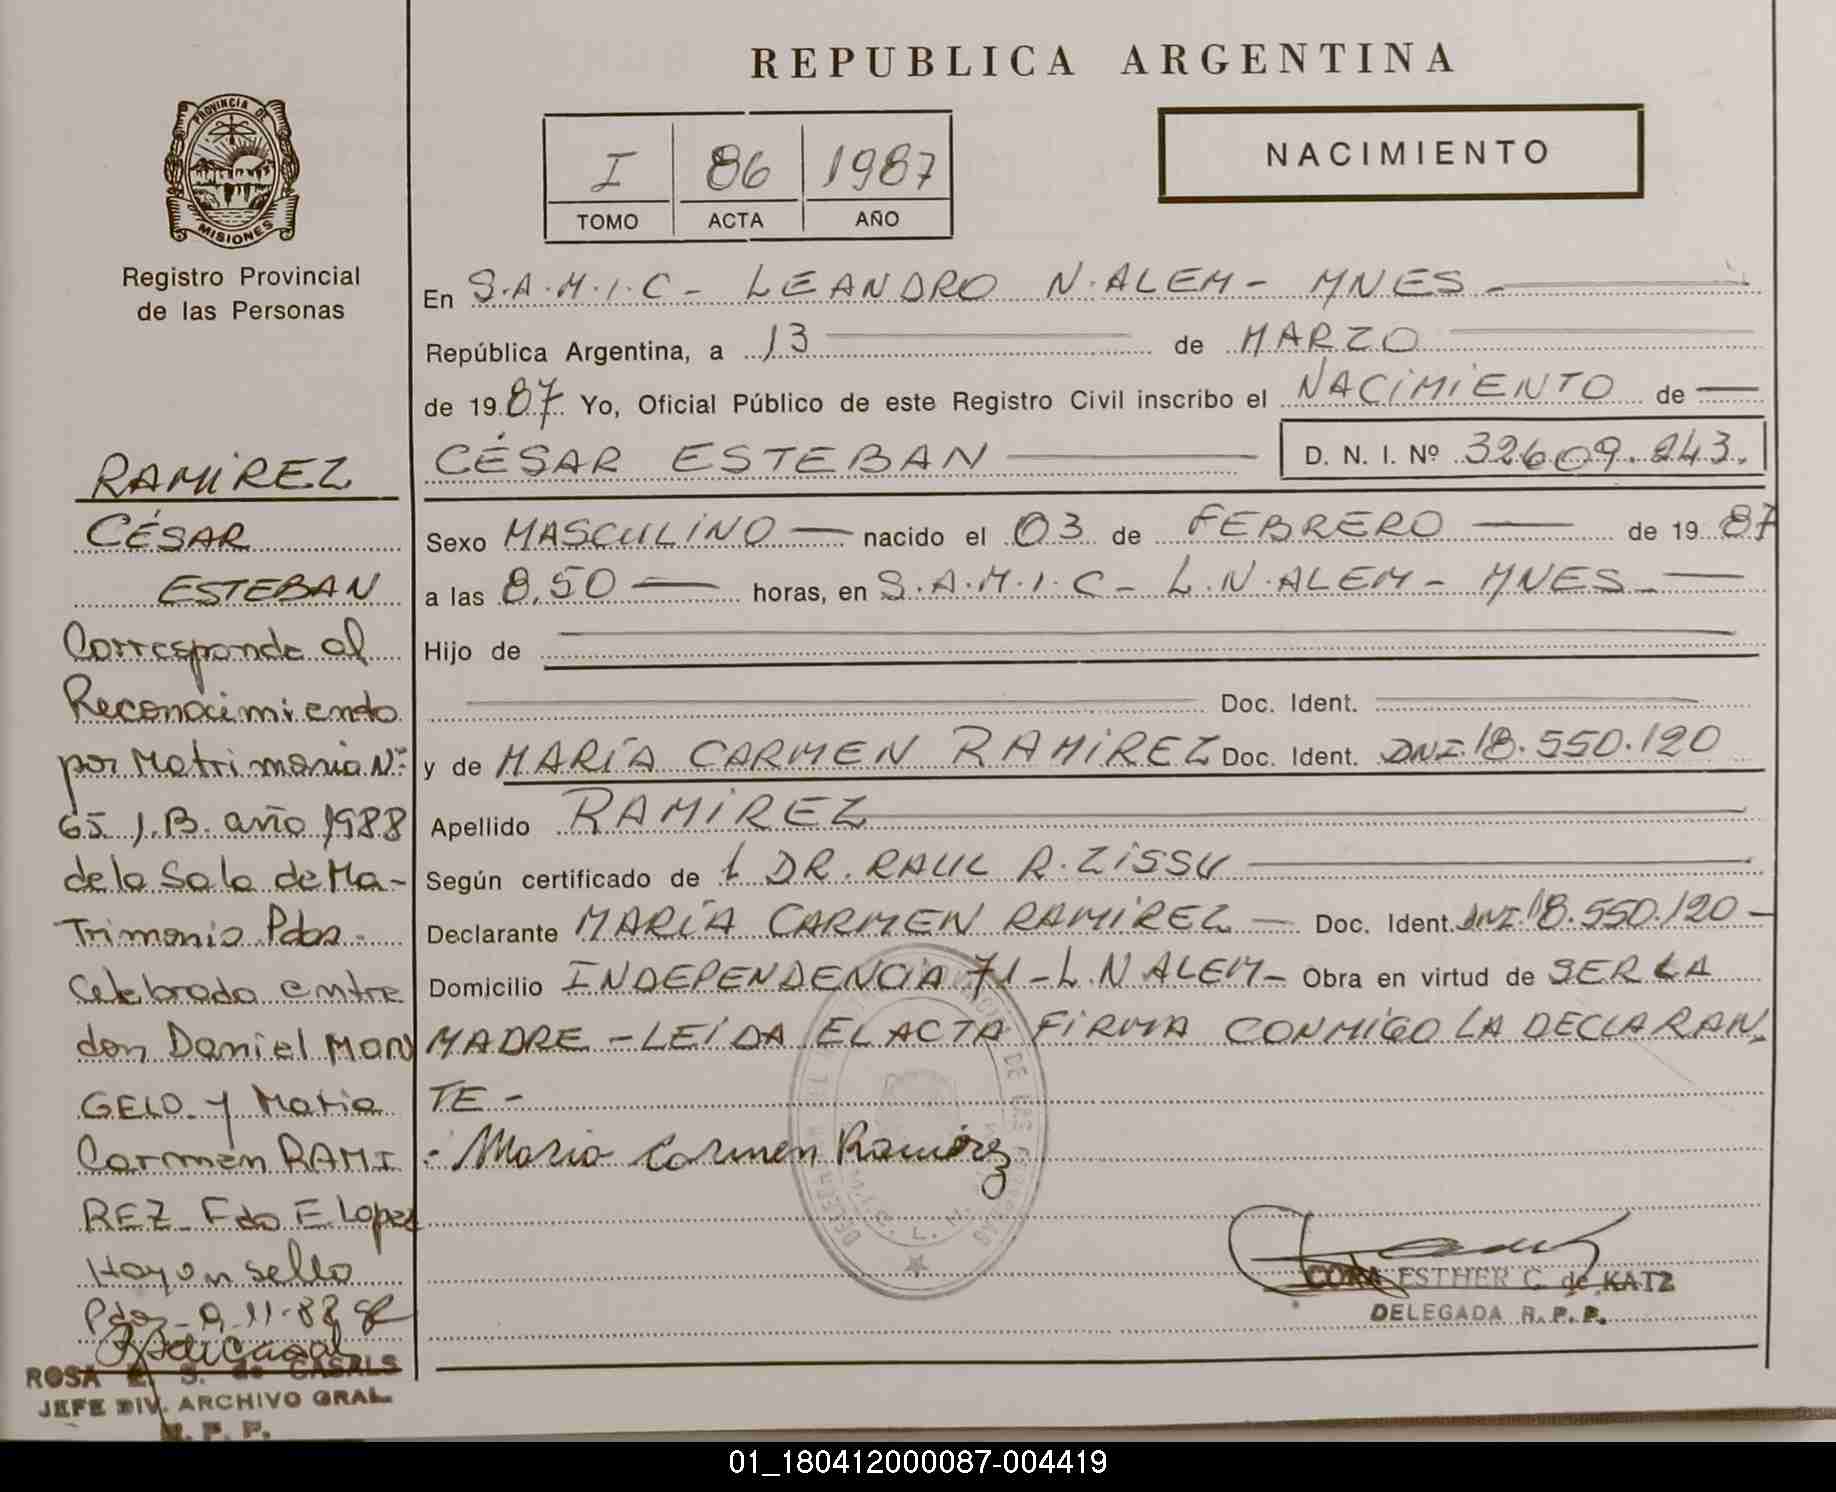 REPUBLICA ARGENTINA
NACIMIENTO
I 86 1987
TOMO ACTA AÑO
PROVINCIA DE
MISIONES
Registro Provincial
de las Personas
RAMIREZ
CÉSAR
ESTEBAN
Corresponde al
Reconocimiento
por Matrimonio Nº
65 J.B. año 1988
de la Sala de Ma-
Trimonio Pdas.
Celebrado entre
don Daniel MON
GELO y Maria
Carmen RAMI
REZ Fdo E. Lopez
Hay un sello
Pdas 9-11-88
ROSA E. S. de CASALS
JEFE DIV. ARCHIVO GRAL.
R. P. P.
En S.A.M.I.C - LEANDRO N. ALEM - MNES -
República Argentina, a 13 de MARZO
de 1987 Yo, Oficial Público de este Registro Civil inscribo el NACIMIENTO de
CÉSAR ESTEBAN D. N. I. Nº 32609.243.
Sexo MASCULINO nacido el 03 de FEBRERO de 1987
a las 8,50 horas, en S.A.M.I.C - L.N.ALEM - MNES -
Hijo de
Doc. Ident.
y de MARÍA CARMEN RAMIREZ Doc. Ident. DNI. 18.550.120
Apellido RAMIREZ
Según certificado de l DR. RAUL R. ZISSU
Declarante MARÍA CARMEN RAMIREZ Doc. Ident. DNI. 18.550.120 -
Domicilio INDEPENDENCIA 71 - L. N ALEM - Obra en virtud de SER LA
MADRE - LEIDA EL ACTA FIRMA CONMIGO LA DECLARAN,
TE -
Maria Carmen Ramirez
CORA ESTHER C. de KATZ
DELEGADA R. P. P.
01_180412000087-004419